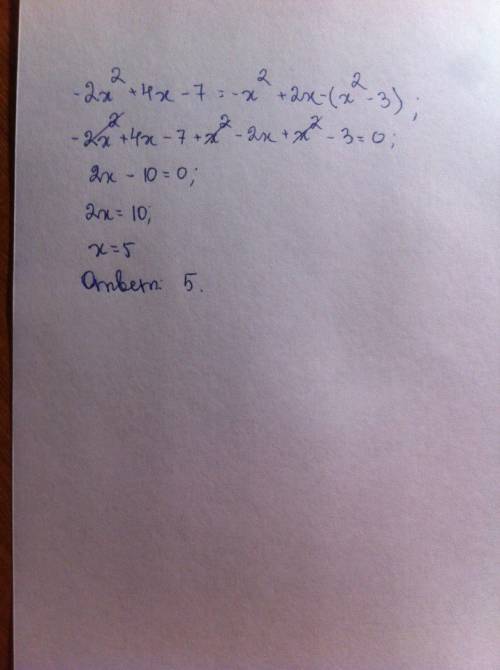 -2x² + 4x - 7 = -x² + 2x - (x² - 3);
-2x² + 4x - 7 + x² - 2x + x² - 3 = 0;
2x - 10 = 0;
2x = 10;
x = 5
Ответ: 5.